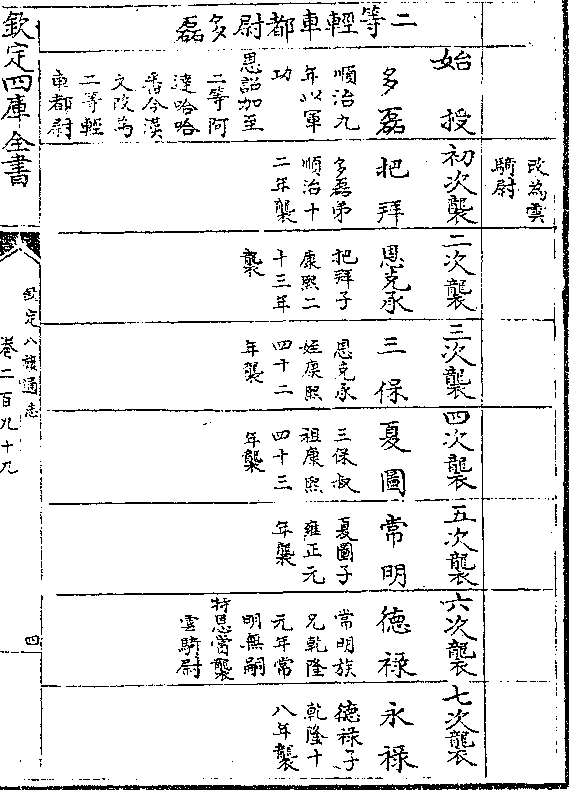 改為雲
騎尉
二等輕車都尉多磊
始授
多磊
順治九
年以軍
功
恩詔加至
二等阿
達哈哈
番今漢
文改為
二等輕
車都尉
初次襲
把拜
多磊弟
順治十
二年襲
二次襲
恩克承
把拜子
康熙二
十三年
襲
三次襲
三保
恩克承
姪康熙
四十二
年襲
四次襲
夏圖
三保叔
祖康熙
四十三
年襲
五次襲
常明
夏圖子
雍正元
年襲
六次襲
德祿
常明族
兄乾隆
元年常
明無嗣
特恩賞襲
雲騎尉
七次襲
永祿
德祿子
乾隆十
八年襲
欽定四庫全書
欽定八旗通志
卷二百九十九
四